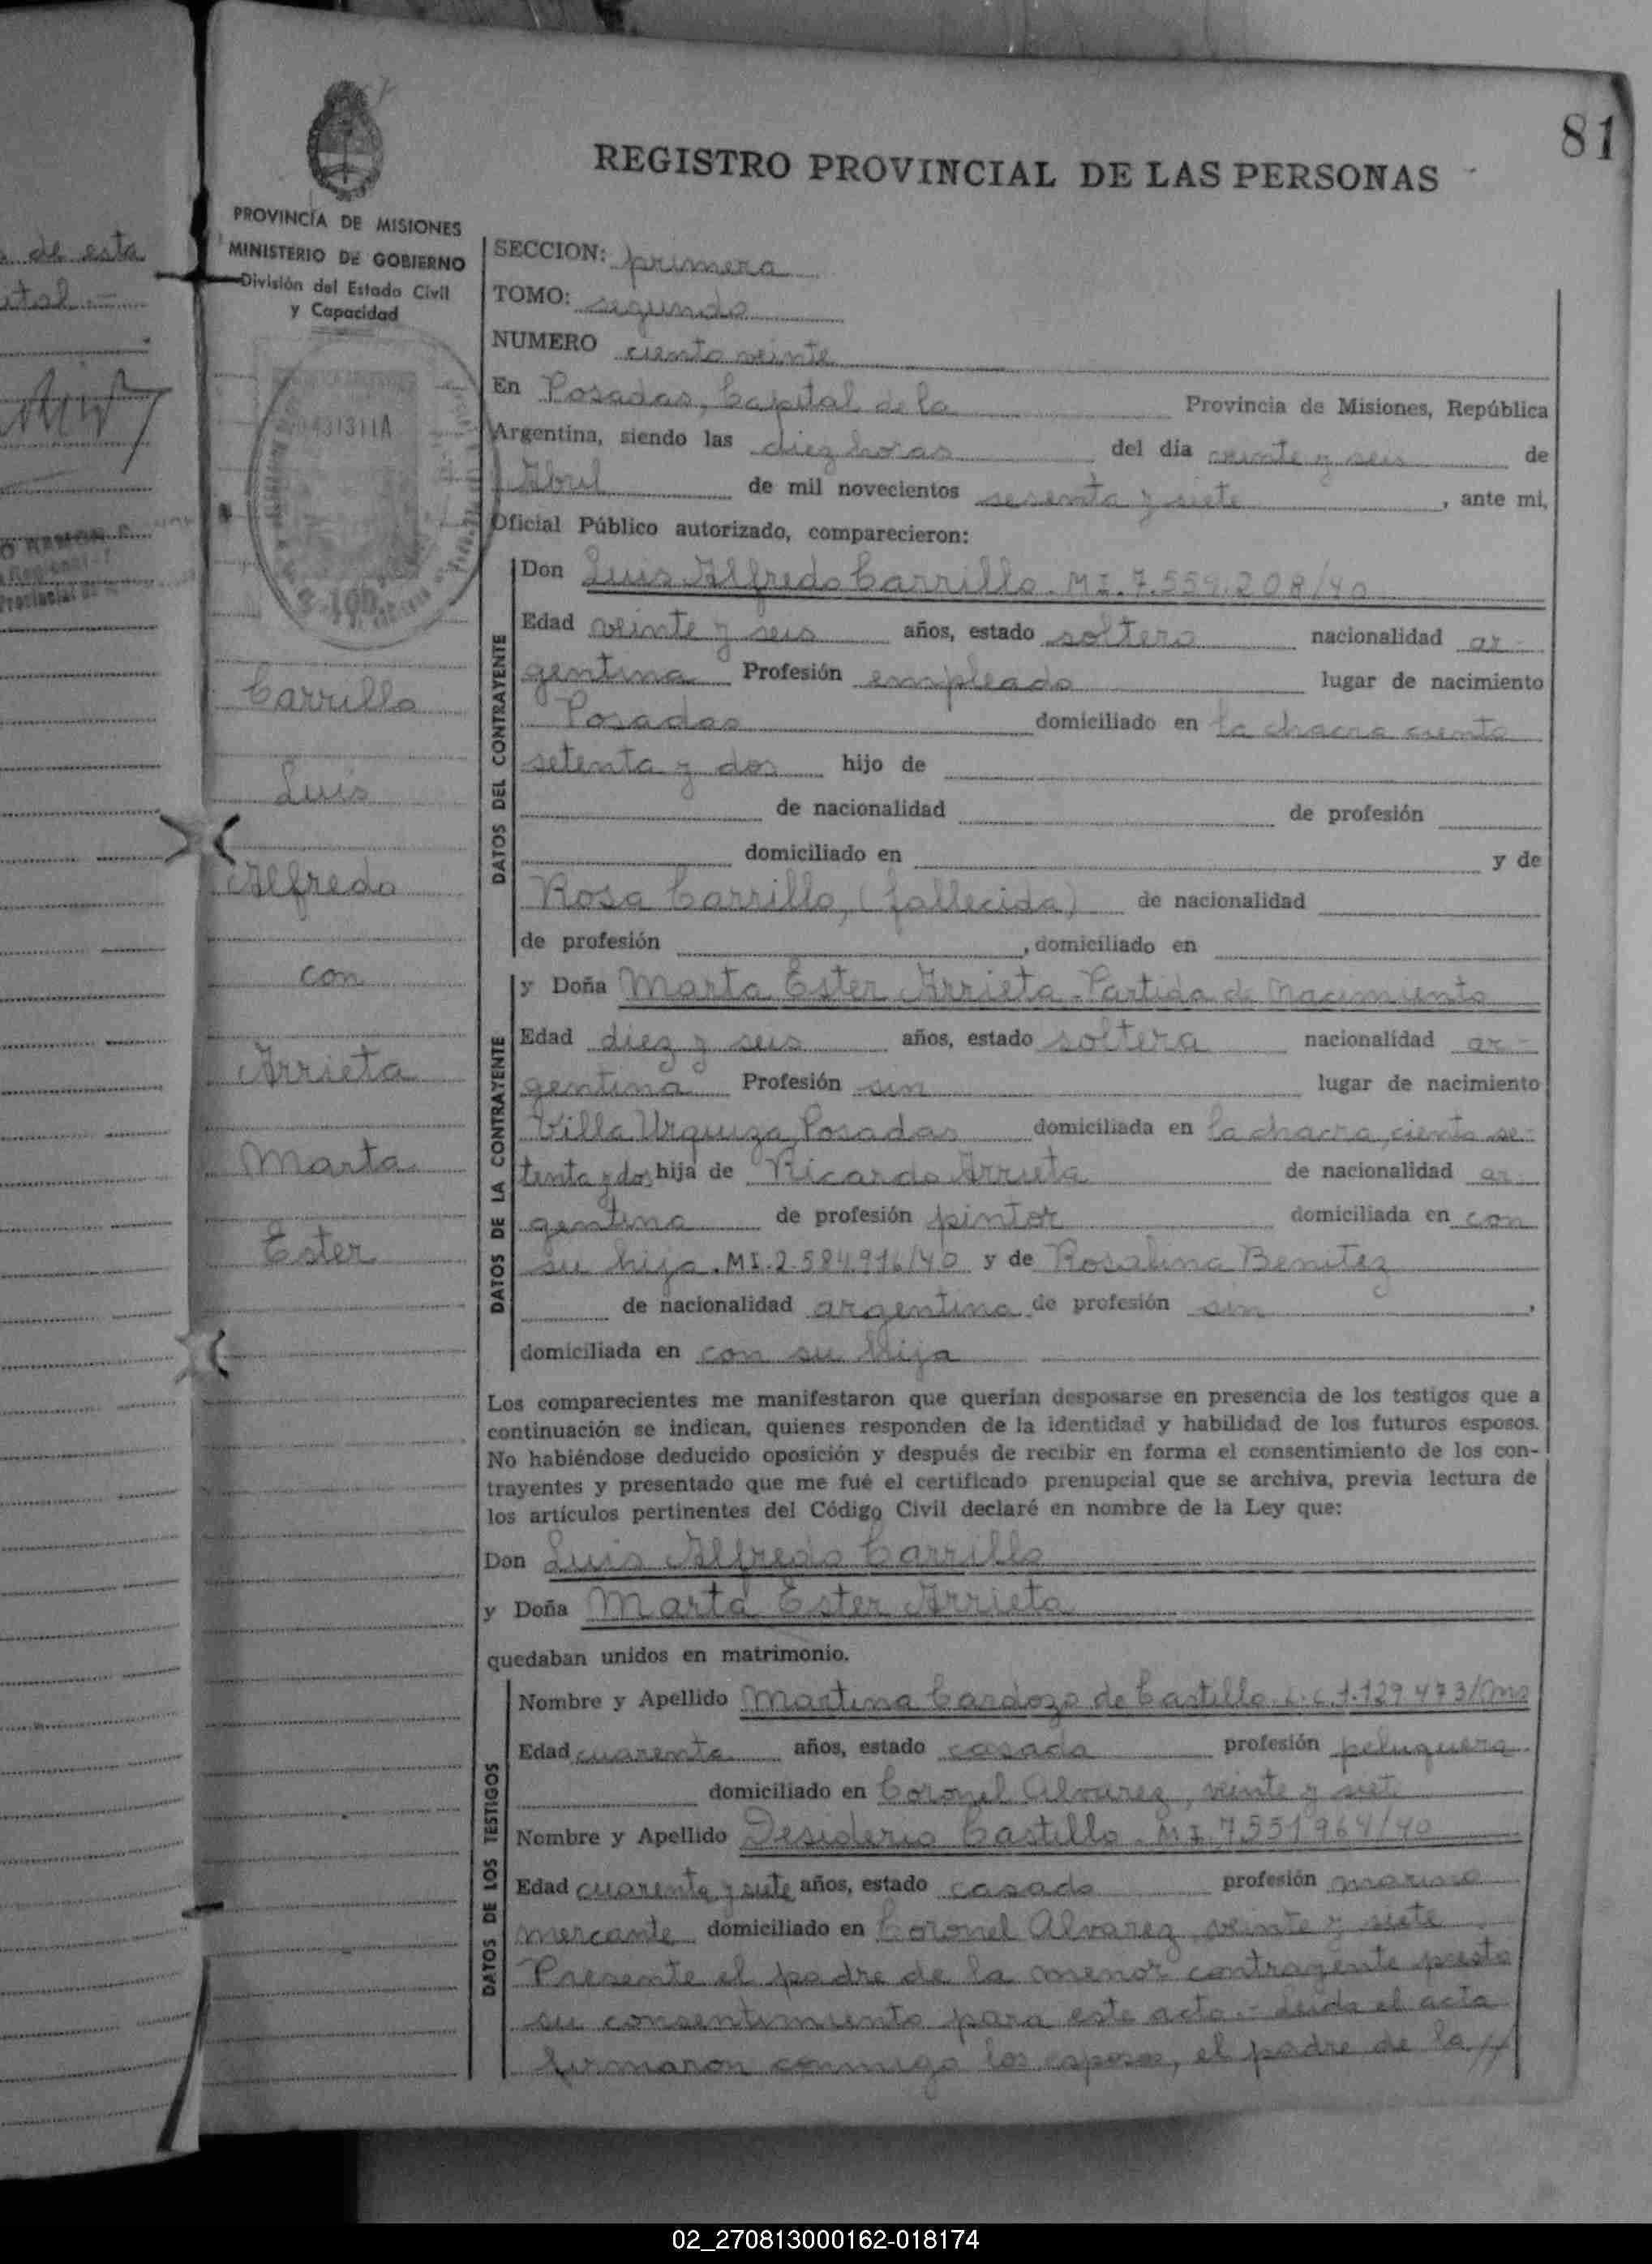 81
REGISTRO PROVINCIAL DE LAS PERSONAS
PROVINCIA DE MISIONES
MINISTERIO DE GOBIERNO
División del Estado Civil
y Capacidad
de esta
431311A
$ 100
Carrillo
Luis
Alfredo
con
Arrieta
Marta
Ester
SECCION: primera
TOMO: segundo
NUMERO ciento veinte
En Posadas, Capital de la Provincia de Misiones, República
Argentina, siendo las diez horas del día veinte y seis de
Abril de mil novecientos sesenta y siete, ante mi,
Oficial Público autorizado, comparecieron:
DATOS DEL CONTRAYENTE
Don Luis Alfredo Carrillo. MI. 7.559.208/40
Edad veinte y seis años, estado soltero nacionalidad ar-
gentina Profesión empleado lugar de nacimiento
Posadas domiciliado en la chacra ciento
setenta y dos hijo de
de nacionalidad de profesión
domiciliado en y de
Rosa Carrillo, (fallecida) de nacionalidad
de profesión , domiciliado en
DATOS DE LA CONTRAYENTE
y Doña Marta Ester Arrieta. Partida de Nacimiento
Edad diez y seis años, estado soltera nacionalidad ar-
gentina Profesión sin lugar de nacimiento
Villa Urquiza, Posadas domiciliada en la chacra, ciento se-
tenta y dos hija de Ricardo Arrieta de nacionalidad ar-
gentina de profesión pintor domiciliada en con
su hija. MI. 2.584.916/40 y de Rosalina Benitez
de nacionalidad argentina de profesión sin ,
domiciliada en con su hija
Los comparecientes me manifestaron que querían desposarse en presencia de los testigos que a
continuación se indican, quienes responden de la identidad y habilidad de los futuros esposos.
No habiéndose deducido oposición y después de recibir en forma el consentimiento de los con-
trayentes y presentado que me fué el certificado prenupcial que se archiva, previa lectura de
los artículos pertinentes del Código Civil declaré en nombre de la Ley que:
Don Luis Alfredo Carrillo
y Doña Marta Ester Arrieta
quedaban unidos en matrimonio.
DATOS DE LOS TESTIGOS
Nombre y Apellido Martina Cardozo de Castillo. L.C. 1.129.473/Mns
Edad cuarenta años, estado casada profesión peluquera
domiciliado en Coronel Alvarez, veinte y siete
Nombre y Apellido Desiderio Castillo. MI. 7551964/40
Edad cuarenta y siete años, estado casado profesión marino
mercante domiciliado en Coronel Alvarez veinte y siete
Presente el padre de la menor contrayente presto
su consentimiento para este acto.- Leida el acta
firmaron conmigo los esposos, el padre de la //
02_270813000162-018174